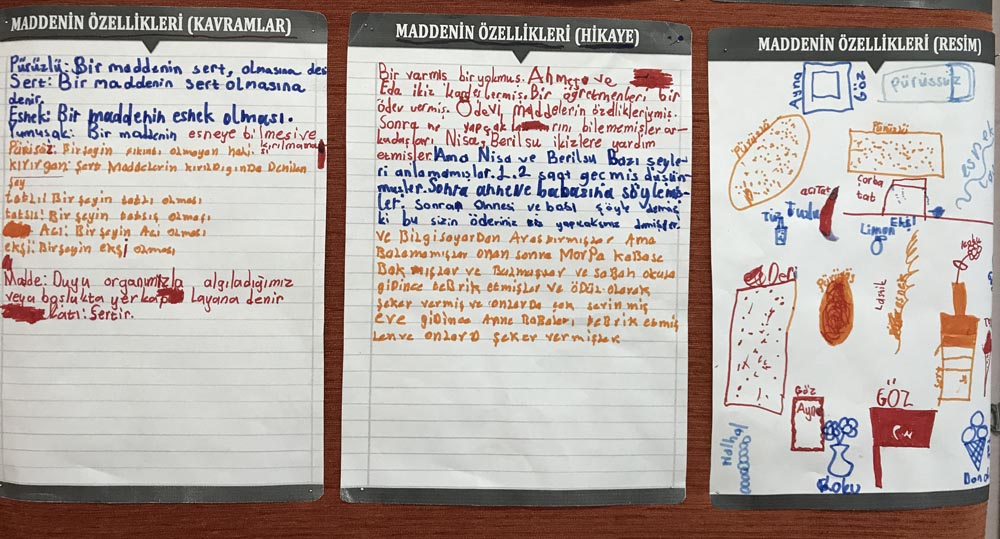 MADDENİN ÖZELLİKLERİ (KAVRAMLAR)
Pürüzlü: Bir maddenin sert, olmasına
Sert: Bir maddenin sert olmasına
denir.
Esnek: Bir maddenin esnek olması.
Yumuşak: Bir maddenin esneye bilmesi ve kırılmama
Pürüsüz: Birşeyin olmayan
kırırgan: Sert Maddelerin kırıldığında Denilen
şey
tatlı: Birşeyin tatlı olması
tatsız: Birşeyin tatsız olması
Acı: Birşeyin Acı olması
ekşi: Birşeyin Ekşi olması
Madde: Duyu organımızla algıladığımız
veya boşlukta yer kap layana denir
katı: Sertir.
MADDENİN ÖZELLİKLERİ (HİKAYE)
Bir varmış bir yokmuş. Ahmet ve
Eda ikiz kardeşlermiş. Bir öğretmenleri bir
ödev vermiş. Ödevi maddelerin özelikleriymiş.
Sonra ne yapçak larını bilememişler ar-
kadaşları Nisa, Berilsu ikizlere yardım
etmişler. Ama Nisa ve Berilsu Bazı şeyle-
ri anlamamışlar. 1.2 saat geçmiş düşün-
müşler. Sohra anne ve babasına söylemiş-
ler. Sonra annesi ve babası şöyle demiş
ki bu sizin ödeviniz biz yapıcakmıyız demişler
ve Bilgisayardan Araştırmışlar Ama
Bulamamışlar ondn sonra Morpa Kabase
Bakmışlar ve Bulmuşlar ve sabah okula
gidince tebrik etmişler ve ödül olarak
şeker vermiş ve onlarda çok sevinmiş
eve gidince Anne Babaları tebrik etmiş
ler ve onlara şeker vermişler
MADDENİN ÖZELLİKLERİ (RESİM)
Ayna
Göz
pürüssüz
Pürüzlü
Pürüzlü
esnek
çorba
tat
acı Tat
Tuz
Tuzlu
Ekşi
Limon
Deri
Pürüzlü
Lastik
esnek
Sert
GÖZ
Ayna
GÖZ
Koku
Dond